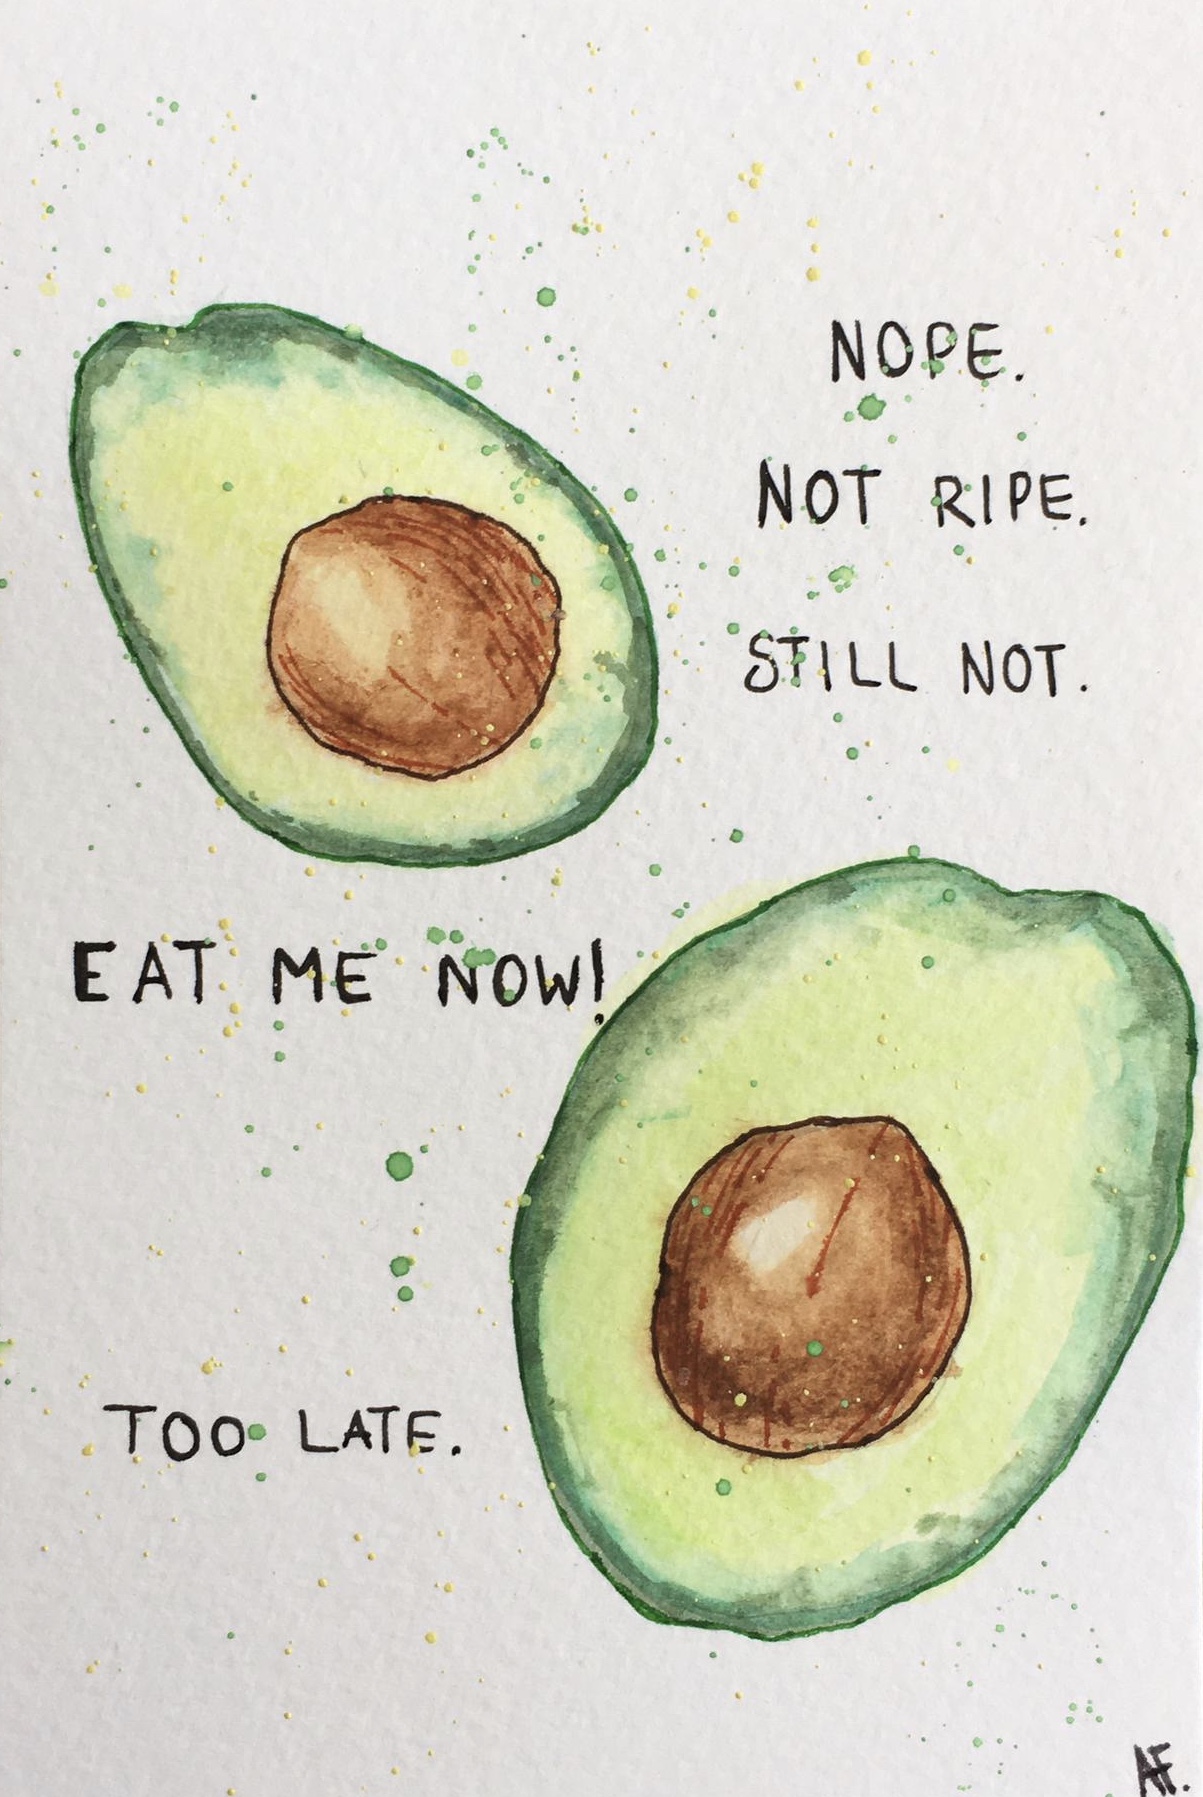 NOPE.
NOT RIPE.
STILL NOT.
EAT ME NOW!
TOO LATE.
AF.